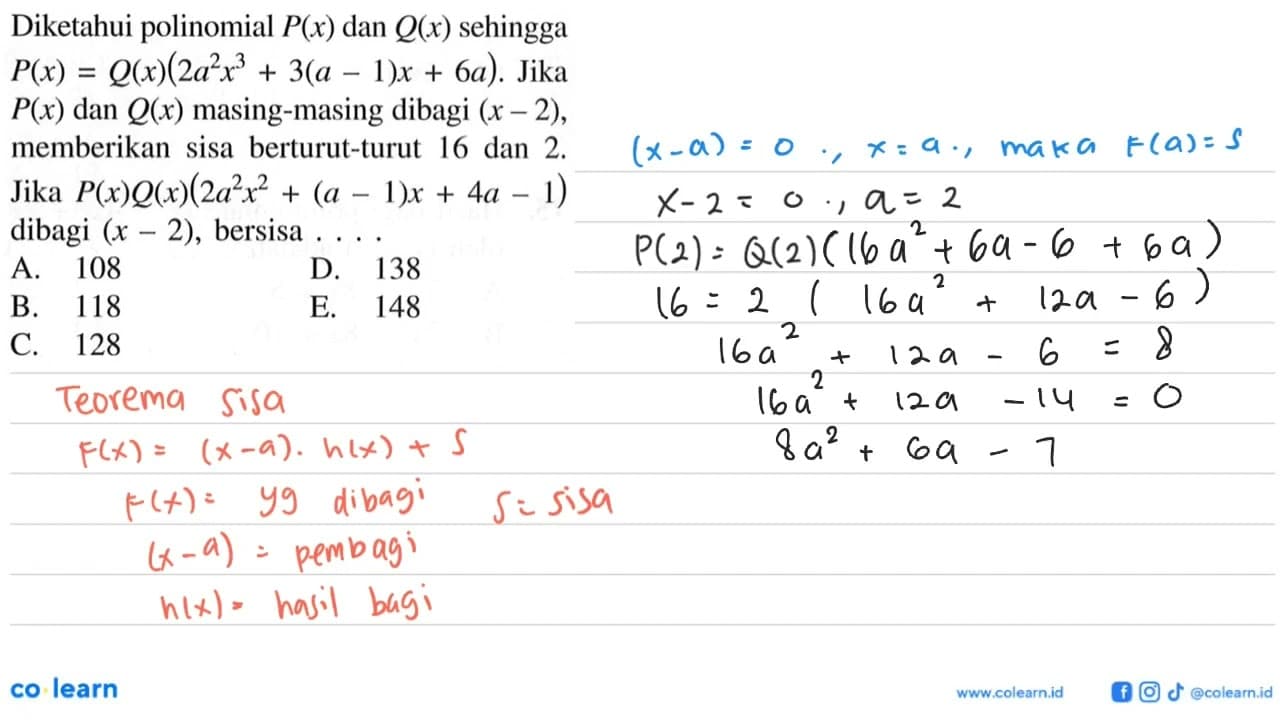 Diketahui polinomial P(x) dan Q(x) sehingga
P(x) = Q(x)(2a²x³ + 3(a − 1)x + 6a). Jika
P(x) dan Q(x) masing-masing dibagi (x – 2),
memberikan sisa berturut-turut 16 dan 2.
Jika P(x)Q(x)(2a²x² + (a − 1)x + 4a − 1)
dibagi (x − 2), bersisa . . . .
A. 108 D. 138
B. 118 E. 148
C. 128
Teorema sisa
F(x) = (x-a). h(x) + S
F(x) = yg dibagi S = sisa
(x-a) = pembagi
h(x) = hasil bagi
(x-a) = 0 ., x = a ., maka F(a) = S
x-2 = 0 ., a = 2
P(2) = Q(2)(16a² + 6a - 6 + 6a)
16 = 2 ( 16a² + 12a - 6 )
16a² + 12a - 6 = 8
16a² + 12a - 14 = 0
8a² + 6a - 7
co learn
www.colearn.id
@colearn.id